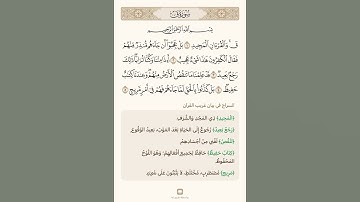 سورة ق
بسم الله الرحمن الرحيم
قٓ وَالْقُرْآنِ الْمَجِيدِ ۝١ بَلْ عَجِبُوا أَن جَاءَهُم مُّنذِرٌ مِّنْهُمْ
فَقَالَ الْكَافِرُونَ هَٰذَا شَيْءٌ عَجِيبٌ ۝٢ أَإِذَا مِتْنَا وَكُنَّا تُرَابًا ذَٰلِكَ
رَجْعٌ بَعِيدٌ ۝٣ قَدْ عَلِمْنَا مَا تَنقُصُ الْأَرْضُ مِنْهُمْ وَعِندَنَا كِتَابٌ
حَفِيظٌ ۝٤ بَلْ كَذَّبُوا بِالْحَقِّ لَمَّا جَاءَهُمْ فَهُمْ فِي أَمْرٍ مَّرِيجٍ ۝٥
السراج في بيان غريب القرآن
﴿الْمَجِيدِ﴾ ذِي المَجْدِ وَالشَّرَفِ.
﴿رَجْعٌ بَعِيدٌ﴾ رُجُوعٌ إِلَى الحَيَاةِ بَعْدَ المَوْتِ، بَعِيدُ الوُقُوعِ.
﴿تَنقُصُ﴾ تُفْنِي مِنْ أَجْسَادِهِمْ.
﴿كِتَابٌ حَفِيظٌ﴾ حَافِظٌ لِجَمِيعِ أَفْعَالِهِمْ؛ وَهُوَ اللَّوْحُ
المَحْفُوظُ.
﴿مَرِيجٍ﴾ مُضْطَرِبٍ، مُخْتَلِطٍ، لَا يَثْبُتُونَ عَلَى شَيْءٍ.